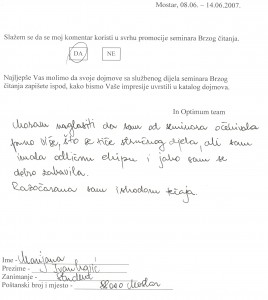 Mostar, 08.06. – 14.06.2007.
Slažem se da se moj komentar koristi u svrhu promocije seminara Brzog čitanja.
DA NE
Najljepše Vas molimo da svoje dojmove sa službenog dijela seminara Brzog
čitanja zapišete ispod, kako bismo Vaše impresije uvrstili u katalog dojmova.
In Optimum team
Moram naglasiti da sam od seminara očekivala
puno više, što se tiče stručnog dijela, ali sam
imala odličnu ekipu i jako sam se
dobro zabavila.
Razočarana sam ishodom tečaja.
Ime - Marijana
Prezime -
Zanimanje - student
Poštanski broj i mjesto - 88000 Mostar